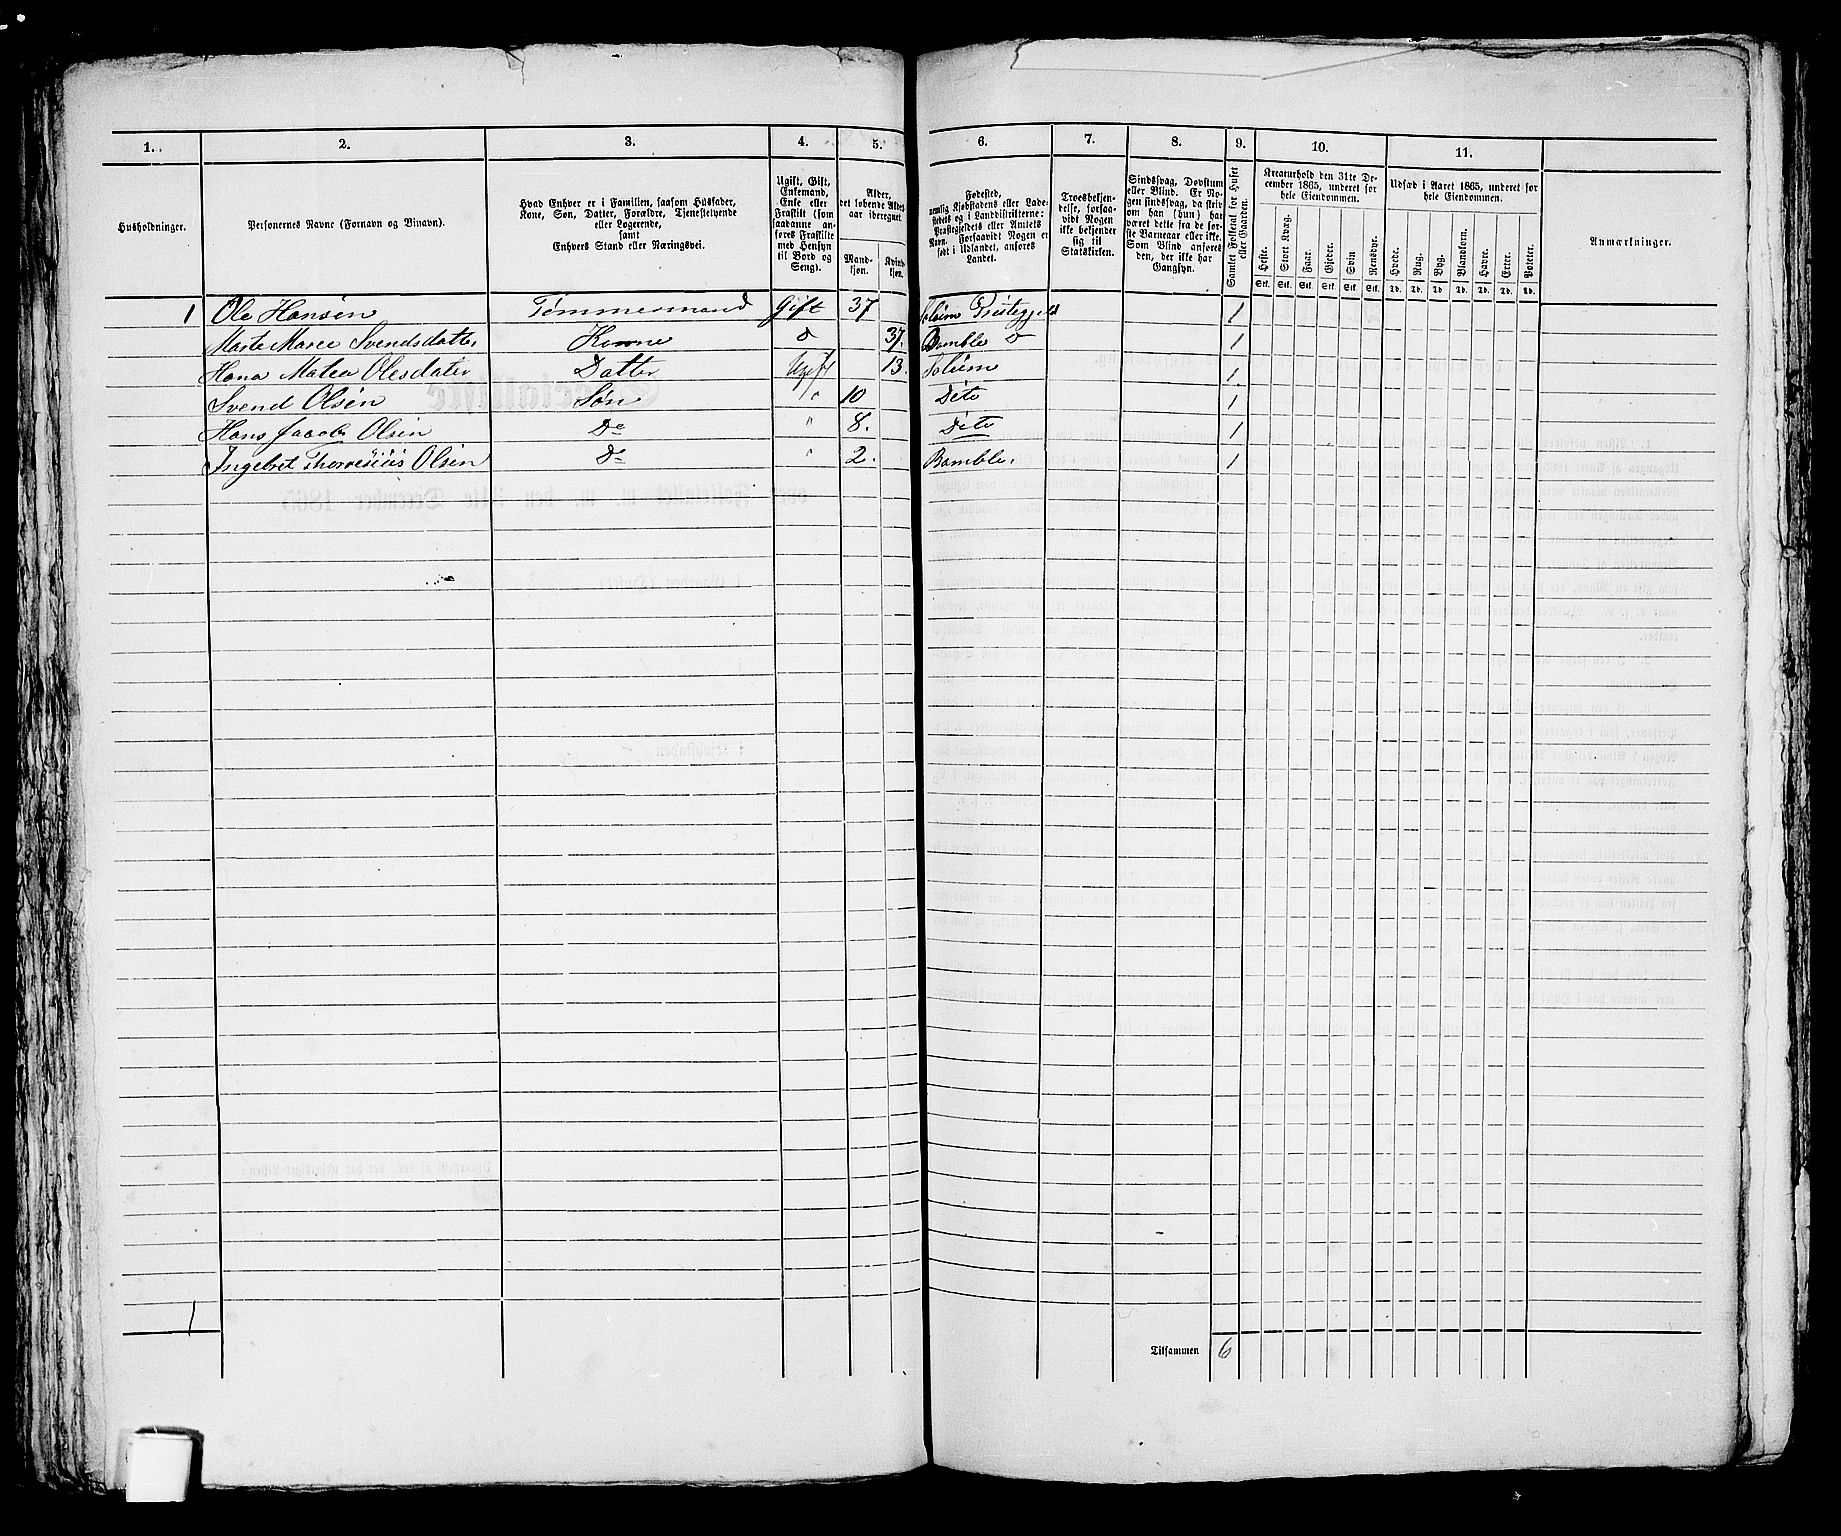 1. 2. 3. 4. 5. 6. 7. 8. 9. 10. 11.
Husholdninger.
Personernes Navne (Fornavn og Binavn).
Hvad Enhver er i Familien, saasom Husfader,
Kone, Søn, Datter, Forældre, Tjenestetyende
eller Logerende,
samt
Enhvers Stand eller Næringsvei.
Ugift, Gift,
Enkemand,
Enke eller
Fraskilt (som
saadanne an-
føres Fraskilte
med Hensyn
til Bord og
Seng).
Alder,
det løbende Alders-
aar iberegnet.
Mand-
kjøn.
Kvind-
kjøn.
Fødested,
nemlig Kjøbstadens eller Lade-
stedets og i Landdistrikterne:
Præstegjeldets eller Amtets
Navn. Forsaavidt Nogen er
født i Udlandet, anføres
Landet.
Troesbekjen-
delse, forsaa-
vidt Nogen
ikke bekjender
sig til
Statskirken.
Sindssvag, Døvstum
eller Blind. Er No-
gen sindssvag, da skriv
om han (hun) har
været dette fra de før-
ste Barneaar eller ikke.
Som Blind anføres
den, der ikke har
Gangsyn.
Samlet Folketal for Huset
eller Gaarden.
Kreaturhold den 31te De-
cember 1865, underet for
hele Eiendommen.
Heste. Stort Kvæg. Faar. Gjeder. Svin Rensdyr.
Stk. Stk. Stk. Stk. Stk. Stk.
Udsæd i Aaret 1865, underet for
hele Eiendommen.
Hvede. Rug. Byg. Blandkorn. Havre. Erter. Poteter.
Td. Td. Td. Td. Td. Td. Td.
Anmærkninger.
1 Ole Hansen Tømmermand Gift 37 Solum Præstegjeld 1
Marte Maree Svendsdatter Konne do 37. Bamble do 1
Hana Matea Olesdater Datter Ugift 13. Solum 1.
Svend Olsen Søn " 10 Dito 1
Hans Jacob Olsen Do " 8. Dito 1
Ingebret Olsen Do " 2. Bamble. 1
1
Tilsammen 6